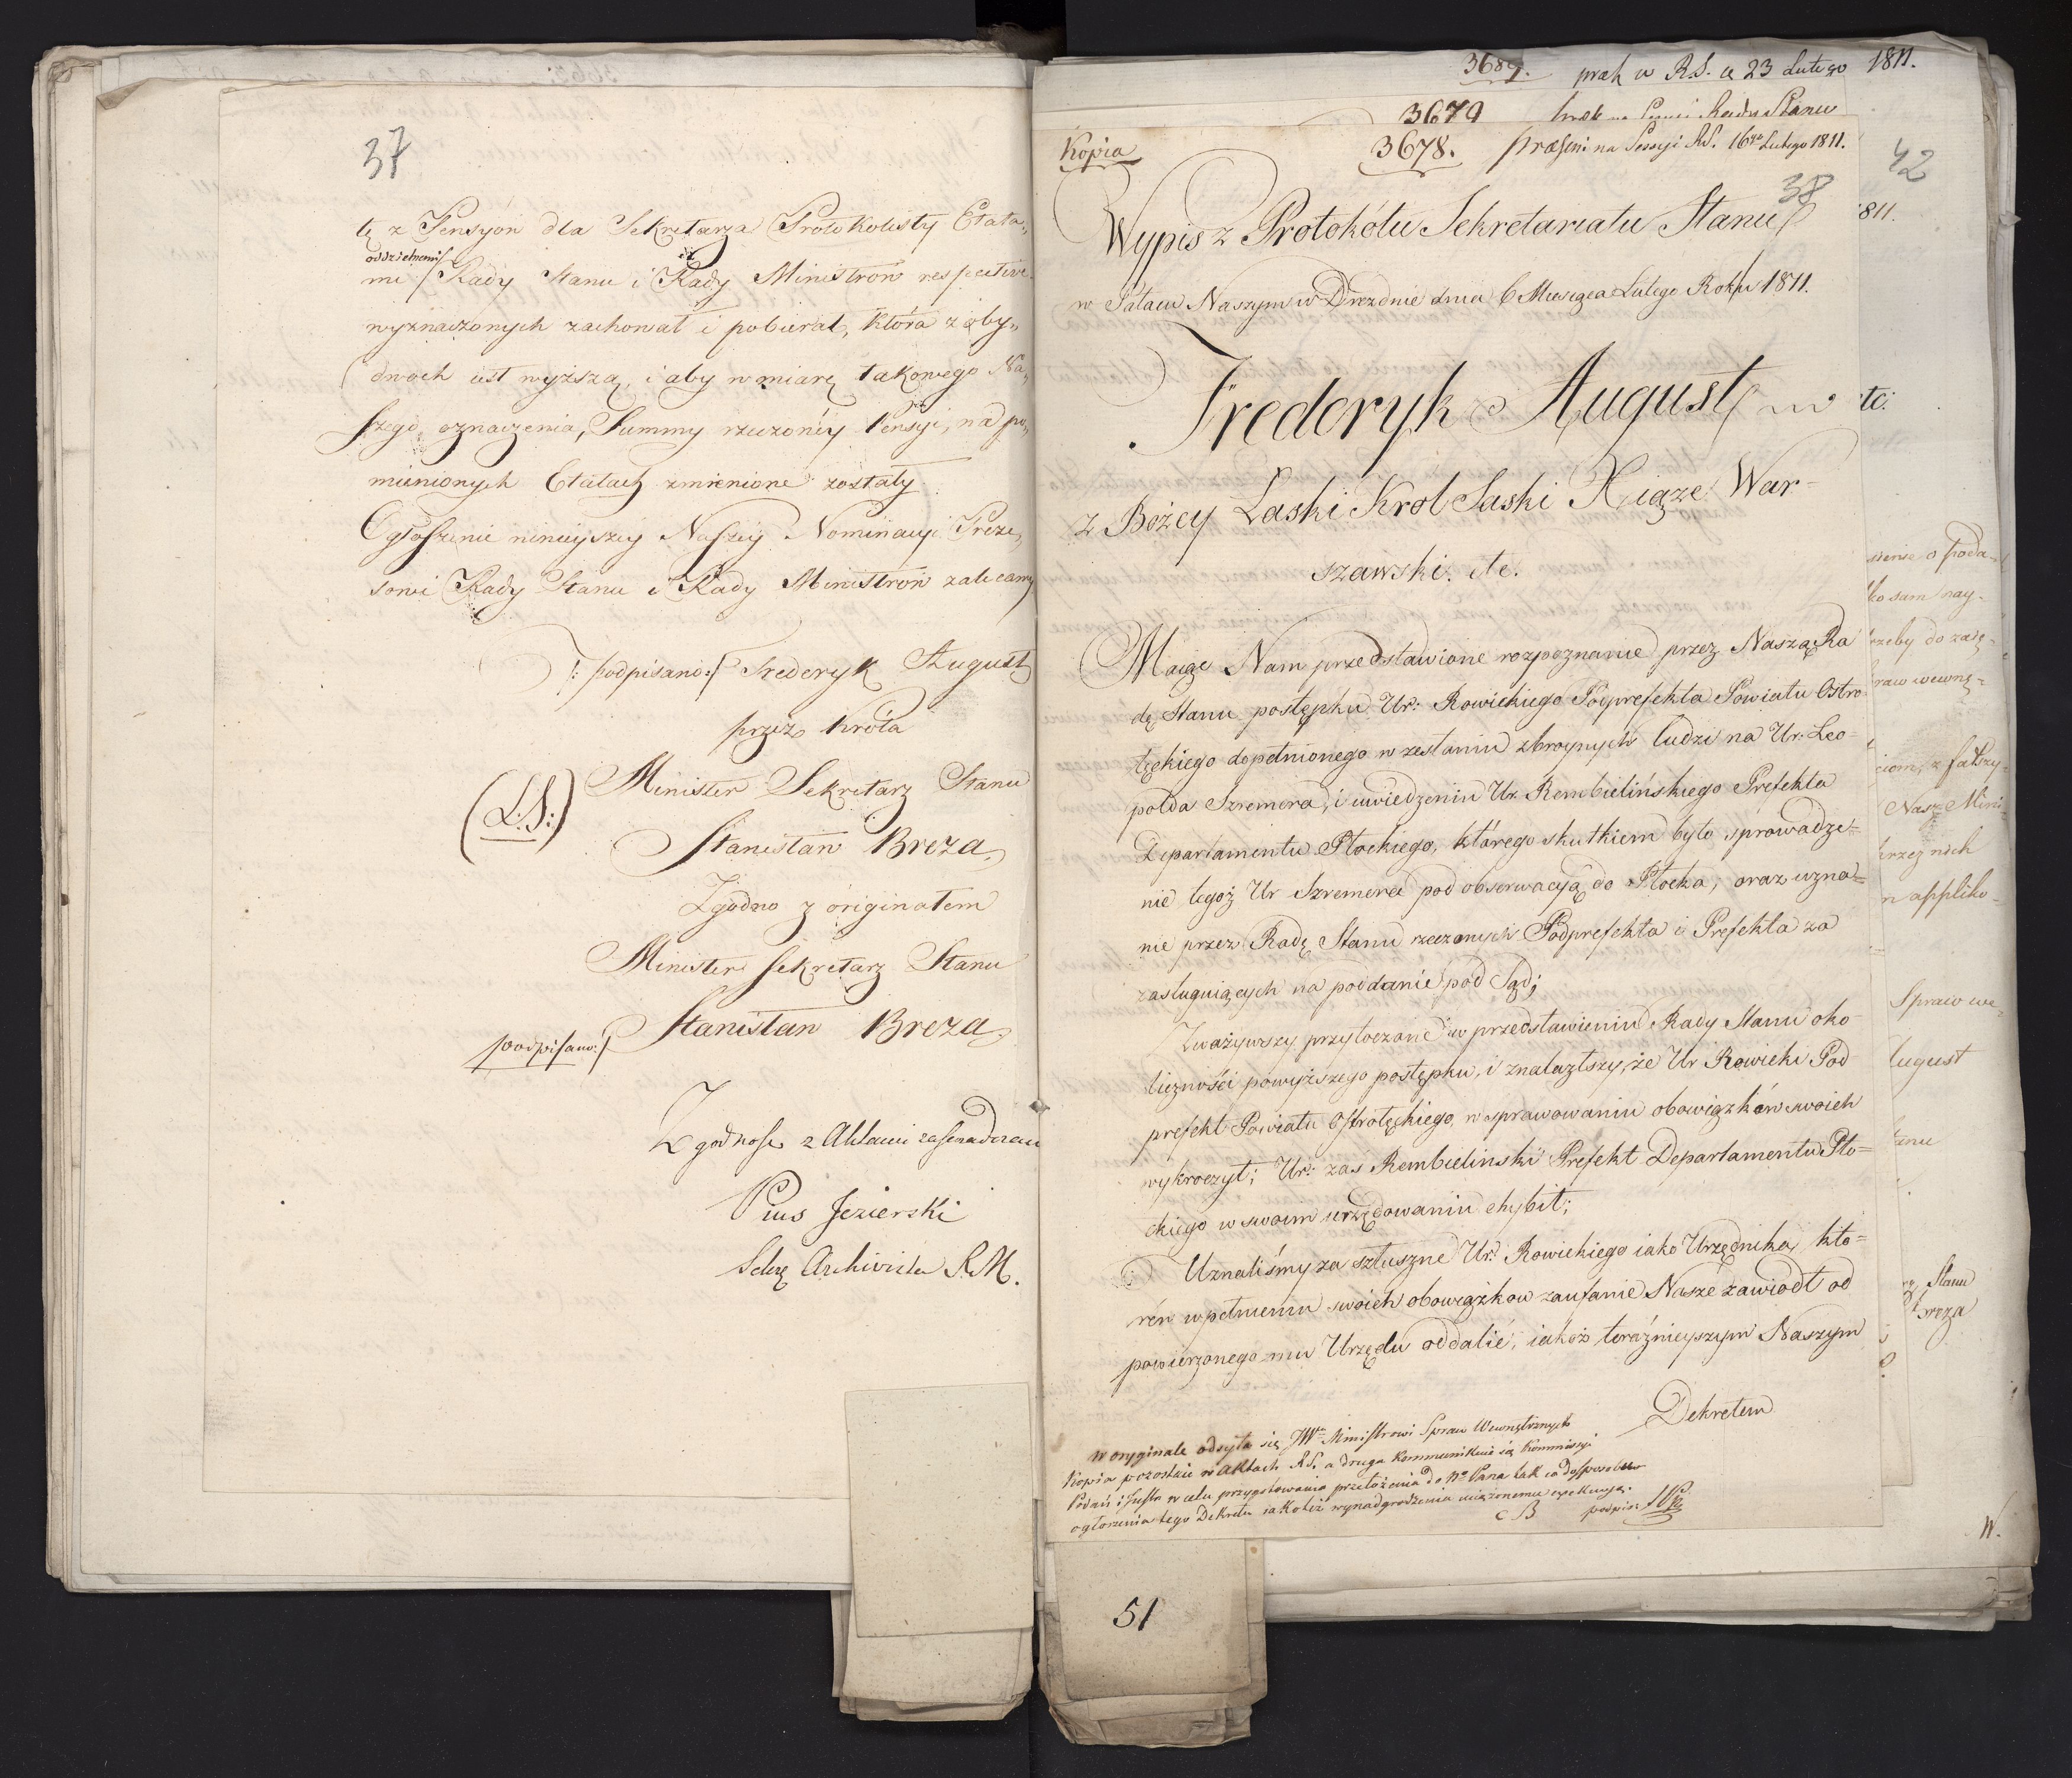 37
tę z Pensyön dla Sekretarza Protokolisty Etata„
oddzielnemi
mi Rady Stanu i Rady Ministrow respective
wyznaczonych zachował i pobierał, która z oby„
dwoch iest wyższą, i aby w miarę takowego Na„
szego oznaczenia, Summy rzeczonéy Pensyi, na po„
mienionych Etatach zmienione zostały
Ogłoszenie ninieyszey Naszéy Nominacyi Preze„
sowi Rady Stanu i Rady Ministrow zalecamy
/: podpisano :/ Frederyk August
przez Króla
Minister Sekretarz Stanu
(L.S:)
Stanisław Breza
Zgodno z originałem
Minister Sekretarz Stanu
podpisano:/ Stanisław Breza
Zgodność z Aktami
Pius Jezierski
Sekrę Archivista R.M.
3689. w R.S. 23 Lutego 1811.
3679 na Sessyi Rady Stanu
Kopia 3678. præsent na Sessyi RS. 16go Lutego 1811.
42
38
Wypis z Protokółu Sekretariatu Stanu
811.
w Pałacu Naszym w Dreznie dnia 6 Miesiąca Lutego Roku 1811.
Frederyk August
tc:
z Bożey Łaski Krol Saski Xiąże War=
szawski. etc.
Maiąc Nam przedstawione rozpoznanie przez Naszą Ra
dę Stanu postępku Ur: Rowickiego Podprefekta Powiatu Ostro=
łęckiego dopełnionego w zesłaniu zbroynych ludzi na Ur: Leo=
polda Szremera, i uwiedzeniu Ur. Rembielińskiego Prefekta
Departamentu Płockiego, którego skutkiem było sprowadze=
nie tegoż Ur Szremera pod obserwacyą do Płocka, oraz uzna=
nie przez Radę Stanu rzeczonych Podprefekta i Prefekta za
zasługuiących na poddanie pod Sąd;
Zważywszy przytoczone w przedstawieniu Rady Stanu oko
liczności powyższego postępku, i znalazłszy, że Ur Rowicki Pod
prefekt Powiatu Ostrołęckiego, w sprawowaniu obowiązków swoich
wykroczył; Ur: zas Rembielinski Prefekt Departamentu Pło=
ckiego w swoim urzędowaniu chybił;
Uznaliśmy za słuszne Ur: Rowickiego iako Urzędnika, któ=
ren w pełnieniu swoich obowiązkow zaufanie Nasze zawiodł od
powierzonego mu Urzędu oddalić, iakoż teraźnieyszym Naszym
Dekretem
W oryginale odsyła się JWmu Ministrowi Spraw Wewnętrznych
Kopia pozostaie w aktach R.S. a druga kommunikuie się Kommissyi
Podań i Instr. w celu przygotowania przełożenia do No Pana tak co do sposobu
ogłoszenia tego Dekretu iakoteż wynadgrodzenia uciążonemu expekucyą.
podpis:
o poda=
ko sam nay=
rzeby do zaię=
raw wewnę=
ciom, z fałszy=
Nasz Mini=
przez nich
n appliko=
Spraw we=
August
tanu
Stanu
Breza
W.
51